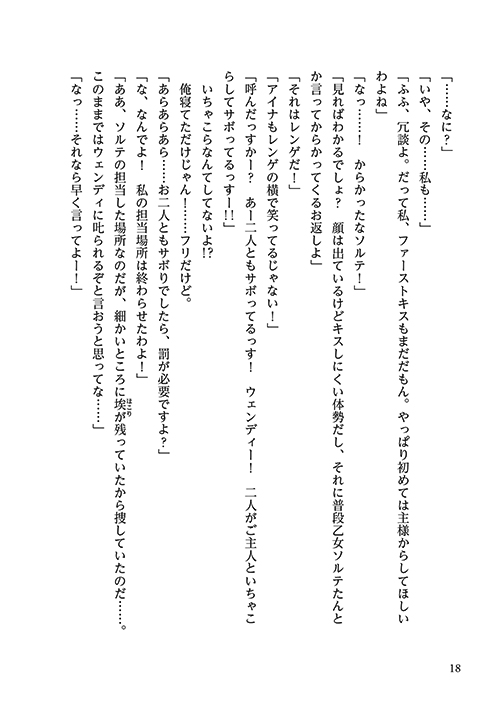 「……なに？」
「いや、その……私も……」
「ふふ、冗談よ。だって私、ファーストキスもまだだもん。やっぱり初めては主様からしてほしい
わよね」
「なっ……！　からかったなソルテ！」
「見ればわかるでしょ？　顔は出ているけどキスしにくい体勢だし、それに普段乙女ソルテたんと
か言ってからかってくるお返しよ」
「それはレンゲだ！」
「アイナもレンゲの横で笑ってるじゃない！」
「呼んだっすかー？　あー二人ともサボってるっす！　ウェンディー！　二人がご主人といちゃこ
らしてサボってるっすー!!」
いちゃこらなんてしてないよ!?
俺寝てただけじゃん！……フリだけど。
「あらあらあら……お二人ともサボりでしたら、罰が必要ですよ？」
「な、なんでよ！　私の担当場所は終わらせたわよ！」
「ああ、ソルテの担当した場所なのだが、細かいところに埃が残っていたから捜していたのだ……。
このままではウェンディに叱られるぞと言おうと思ってな……」
「なっ……それなら早く言ってよー！」
ほこり
18